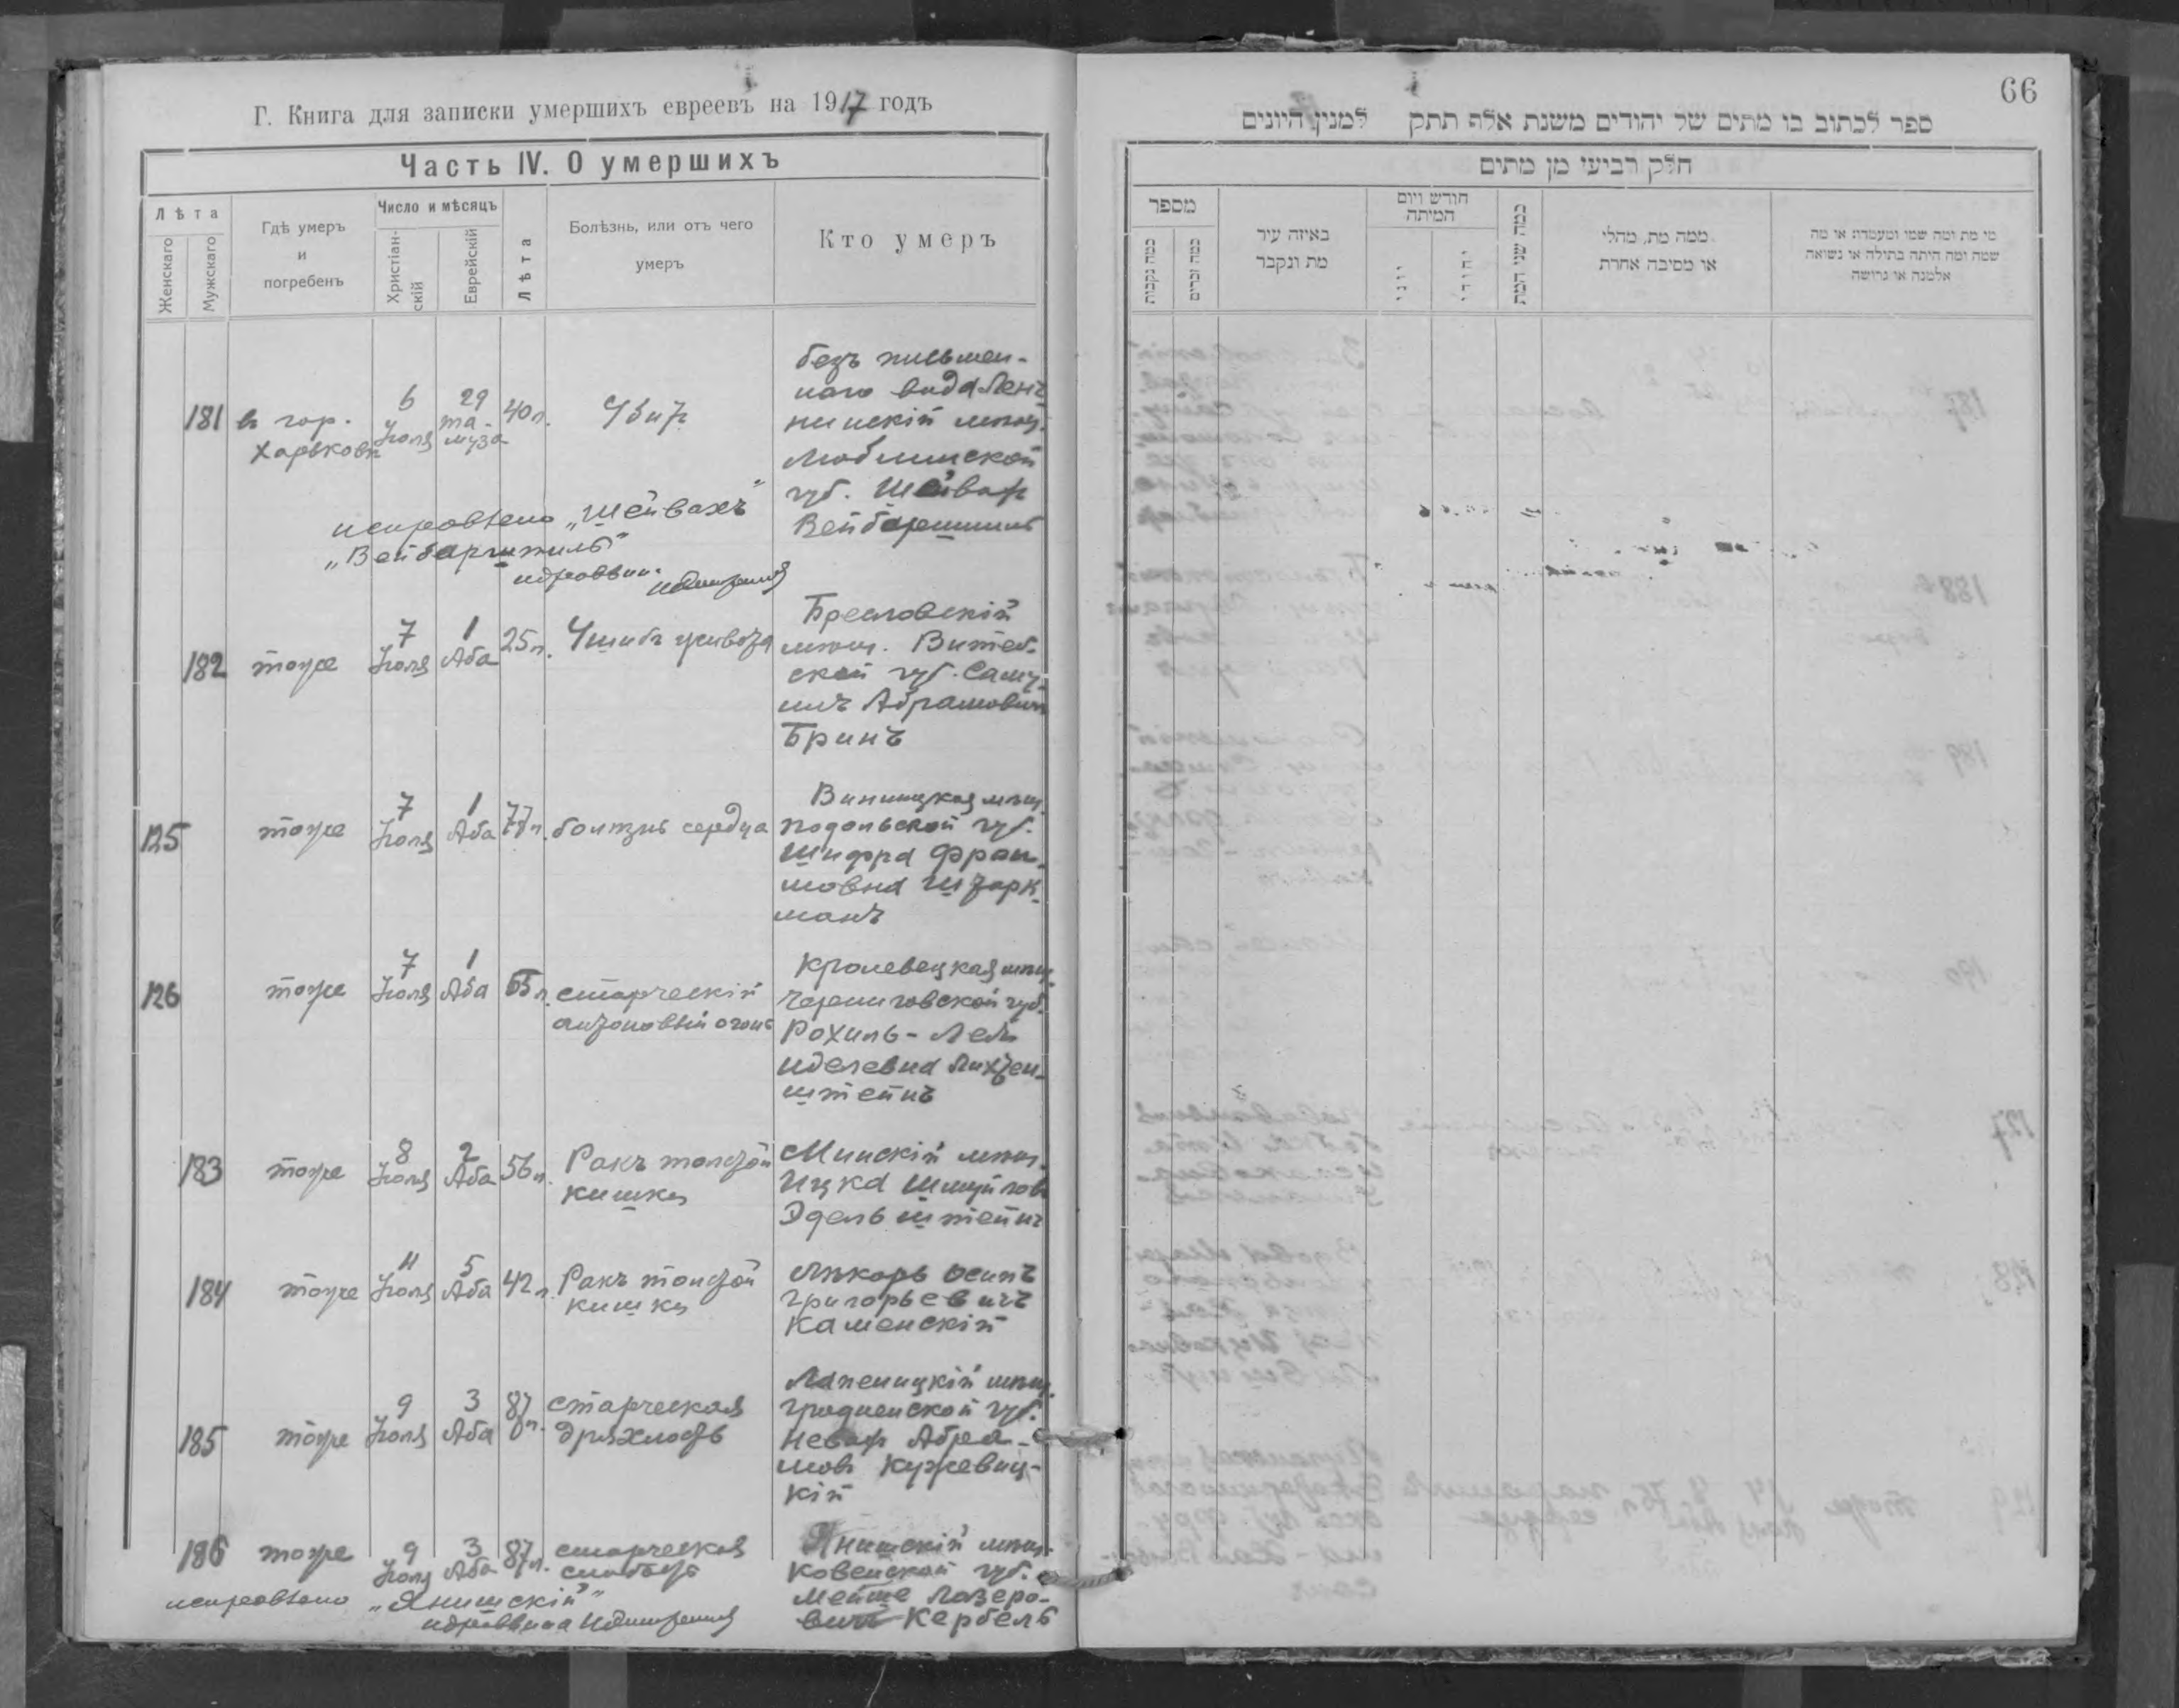 Г. Книга для записки умершихъ евреевъ на 1917 годъ
Часть IV. О умершихъ
Лѣта
Женскаго
Мужскаго
Гдѣ умеръ
и
погребенъ
Число и мѣсяцъ
Христіан-
скій
Еврейскій
Лѣта
Болѣзнь, или отъ чего
умеръ
Кто умеръ
181
въ гор.
Харьковѣ
6
Іюля
29
та-
муза
40 л.
Убитъ
безъ письмен-
наго вида
мѣщ.
Люблинской
губ. Шейвах
Вейбаршниль
исправлено „Шейвахъ"
182
тоже
7
Іюля
1
Аба
25 л.
Ушибъ живота
мѣщ. Витеб-
ской губ. Саму-
илъ Абрамовичъ
Бринъ
125
тоже
7
Іюля
1
Аба
77 л.
болѣзнь сердца
Виницкая мѣщ.
Подольской губ.
Шифра Фрои-
мовна Штарк-
манъ
126
тоже
7
Іюля
1
Аба
65 л.
старческій
антоновый огонь
Кролевецкая мѣщ.
Черниговской губ.
Рохиль-Лея
Иделевна Лихтен-
штейнъ
183
тоже
8
Іюля
2
Аба
56 л.
Ракъ толстой
кишки
Минскій мѣщ.
Ицка Шмуйлов
Эдельштейнъ
184
тоже
11
Іюля
5
Аба
42 л.
Ракъ толстой
кишки
Лѣкарь Осипъ
Григорьевичъ
Каменскій
185
тоже
9
Іюля
3
Аба
87 л.
старческая
дряхлость
Лапеницкій мѣщ.
Гродненской губ.
Невах Абра-
мов Кужевиц-
кій
186
тоже
9
Іюля
3
Аба
87 л.
старческая
слабость
Янишскій мѣщ.
Ковенской губ.
Мейше Лазеро-
вичъ Кербель
исправлено „Янишскій"
66
ספר לכתוב בו מתים של יהודים משנת אלף תתק למנין היונים
חלק רביעי מן מתים
מספר
כמה נקבות
כמה זכרים
באיזה עיר
מת ונקבר
חודש ויום
המיתה
יוני
יהודי
כמה שני המת
ממה מת, מחלי
או מסיבה אחרת
מי מת ומה שמו ומעמדו או מה
שמה ומה היתה בתולה או נשואה
אלמנה או גרושה